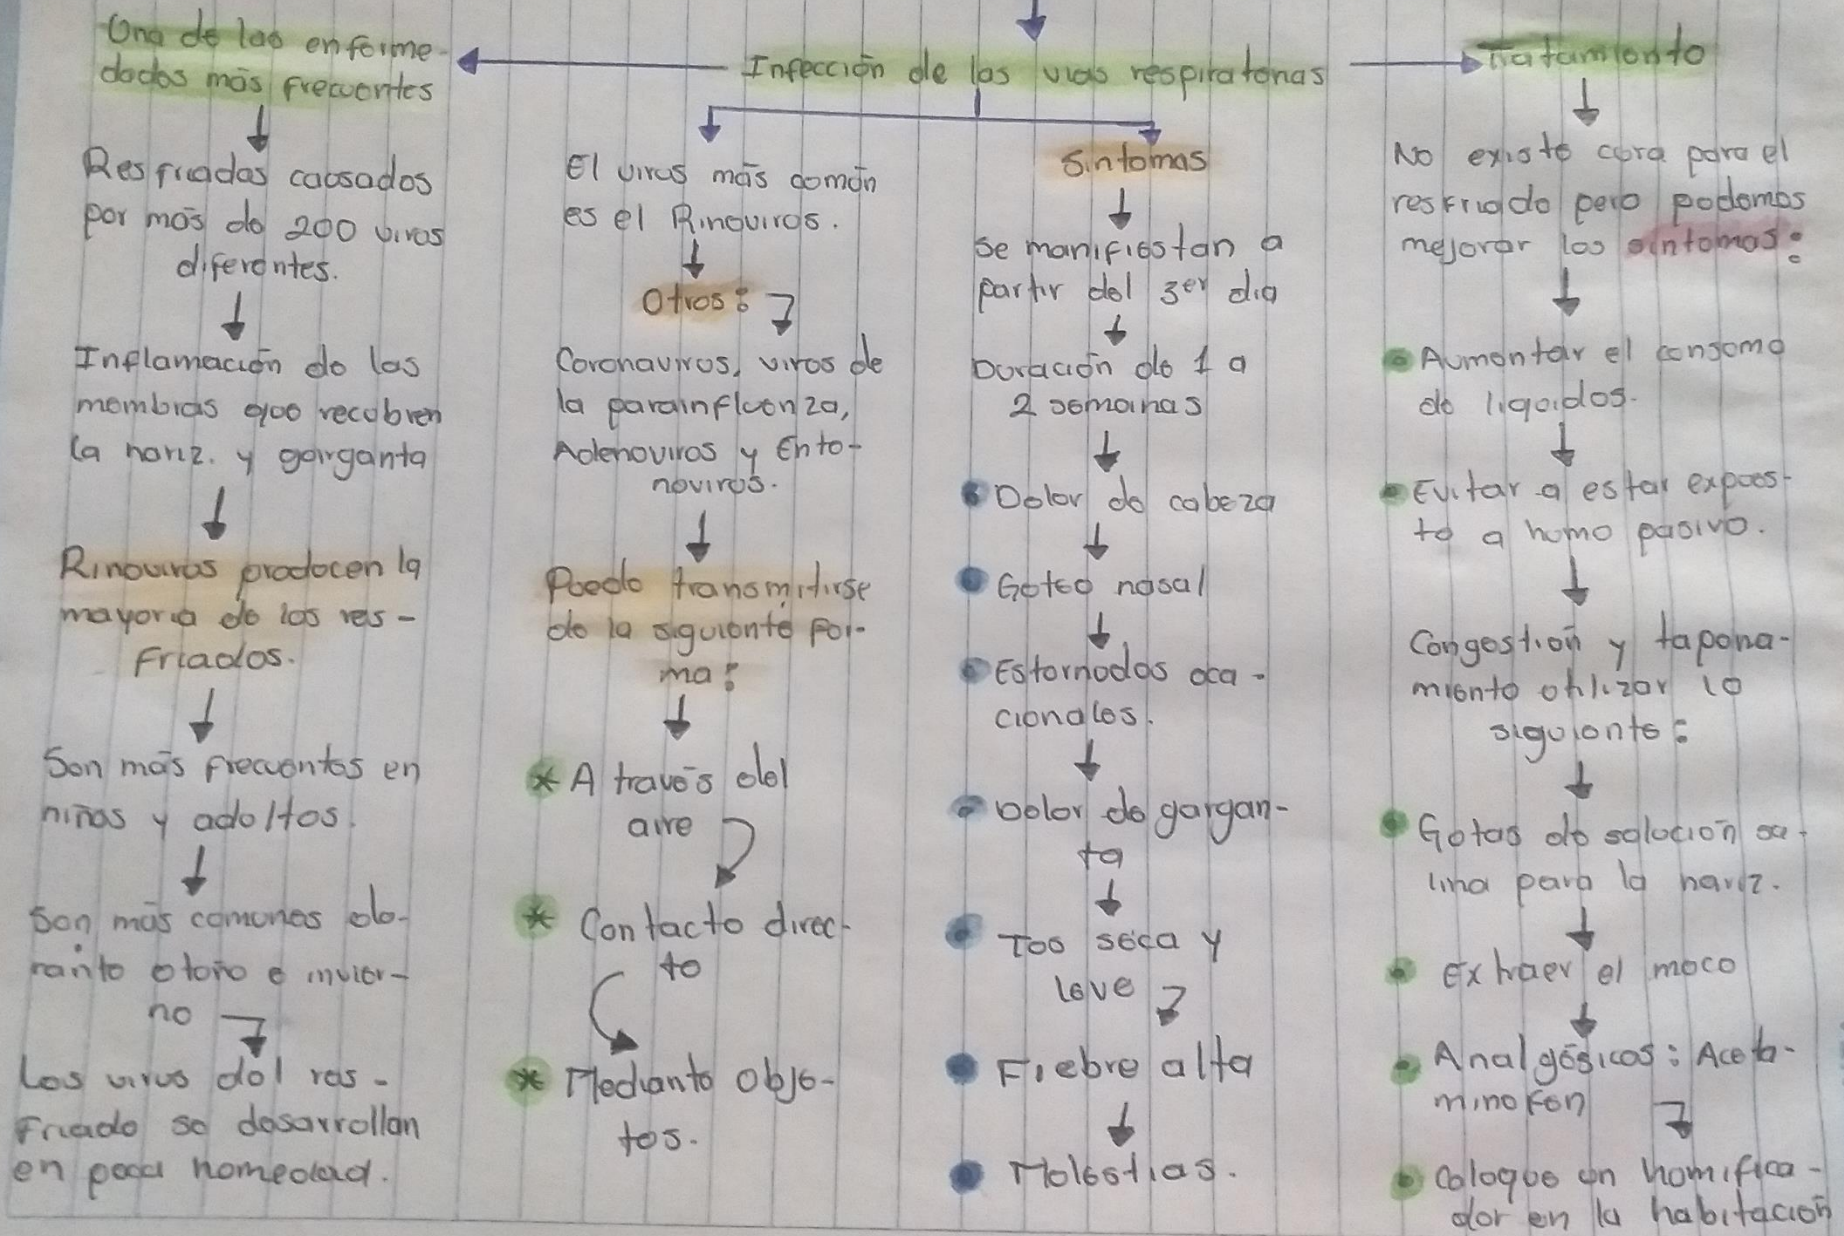 Una de las enferme-
dades más frecuentes
Resfriados causados
por más de 200 virus
diferentes.
Inflamación de las
membras que recubren
la nariz. y garganta
Rinovirus producen la
mayoria de los res-
friados.
Son más frecuentes en
niños y adultos.
Son más comunes du-
rante otoño e invier-
no
Los virus del res-
friado se desarrollan
en poca humedad.
Infección de las vias respiratorias
El virus más común
es el Rinovirus.
Otros:
Coronavirus, virus de
la parainfluenza,
Adenovirus y Ente-
novirus.
Puede transmitirse
de la siguiente for-
ma:
* A través del
aire
* Contacto direc-
to
* Mediante obje-
tos.
Sintomas
Se manifiestan a
partir del 3er dia
Duración de 1 a
2 semanas
Dolor de cabeza
Goteo nasal
Estornudos oca-
cionales.
Dolor de gargan-
ta
Tos seca y
leve
Fiebre alta
Molestias.
Tratamiento
No existe cura para el
resfriado pero podemos
mejorar los sintomas:
Aumentar el consumo
de liquidos.
Evitar a estar expues-
to a humo pasivo.
Congestión y tapona-
miento utilizar lo
siguiente:
Gotas de solución sa-
lina para la nariz.
Extraer el moco
Analgésicos: Aceta-
minofen
Coloque un humifica-
dor en la habitación